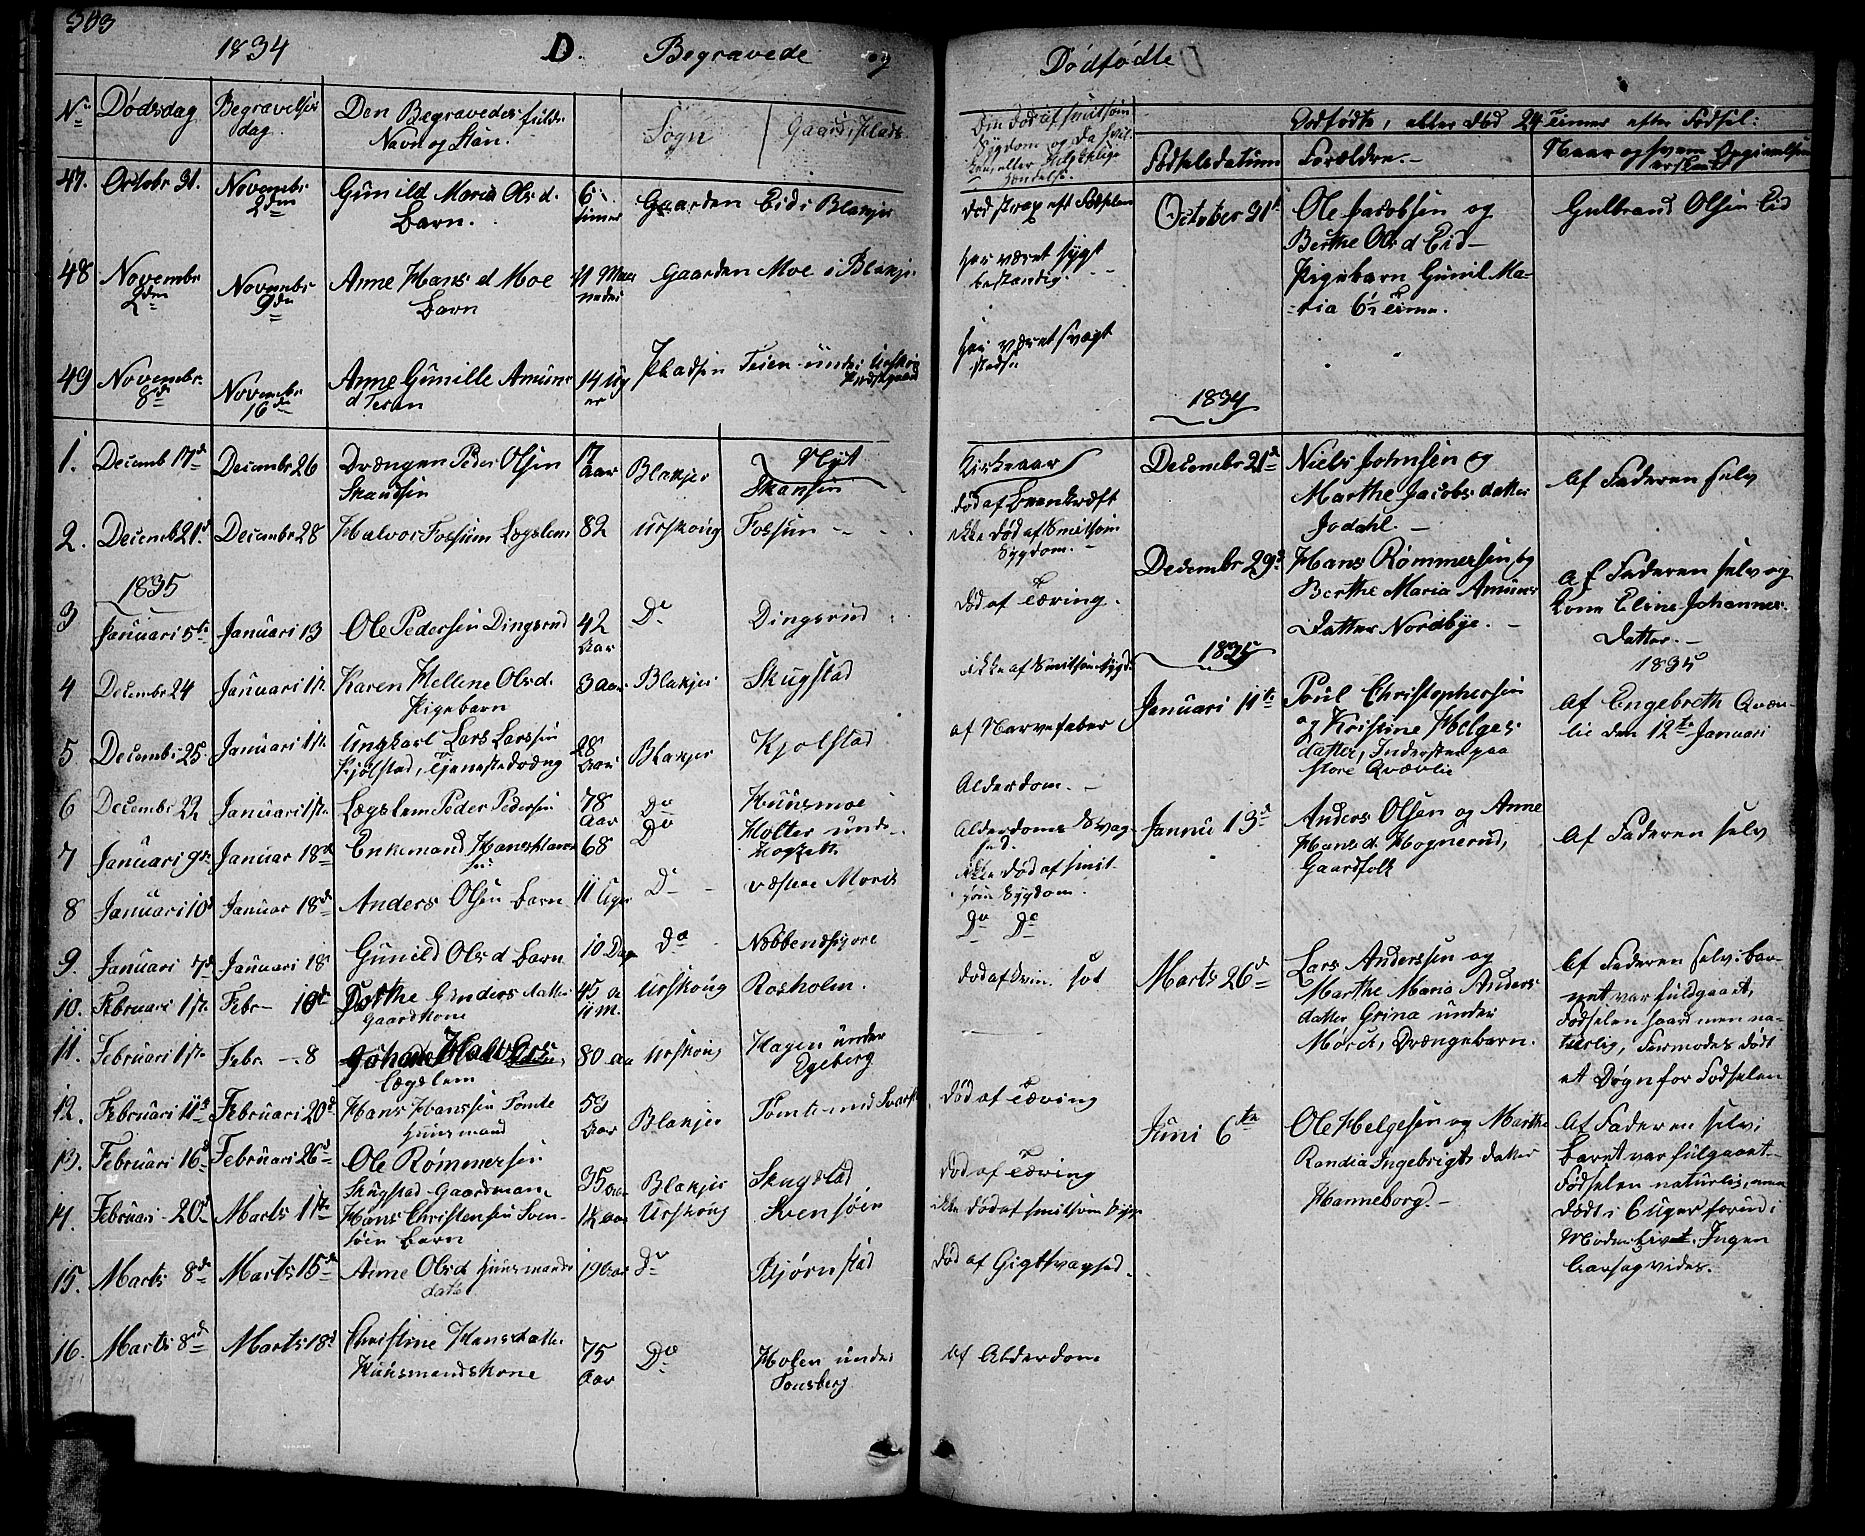 503
1834 D. Begravede og Dödfödte
No Dödsdag Begravelses dag Den Begravedes fulde Navn og Stan. Sogn Gaard, Plads
Födselsdatum Forældre.
Dödfödte, eller död 24 Timer efter Födsel:
47. Octobr 31. Novembr 2den Gunild Maria Ols d. Barn. 6 timer Gaarden Eid i Blakjer död strax eft Födselen
October 31t Ole Jacobsen og Berthe Ols d Eid Pigebarn Gunil Maria 6 Time. Gulbrand Olsen Eid
48 Novembr 2den Novembr 9de Anne Hans d Moe Barn 11 Maaneder Gaarden Moe i Blakjer har været sygt bestandig.
49 Novembr. 8de Novembr 16de Anne Gunille Amuns d Teien 14 Uger Pladsen Teien under Urskoug Præstgaard har været svagt
1834
1. Decemb 17de Decembr 26 Drængen Peder Olsen Skansen 17 aar Blakjer Skansen
Nyt Kirkeaar
Decembr 21de Niels Johnsen og Marthe Jacobs datter Jodahl. Af Faderen selv
2. Decemb 21d. Decembr 28 Halvor Fossum Lægslem 82 Urskoug Fossum ikke död af smitsom Sygdom.
Decembr 29d Hans Römmersen og Berthe Maria Amuns Datter Nordbye. Af Faderen selv og Kone Eline Johannes Datter.
1835
3 Januari 5te Januari 13 Ole Pedersen Dingsrud 42 Aar Do Dingsrud död af Tæring.
4 Decembr 24 Januari 1ste Karen Hellene Olsd. Pigebarn 3 Aar Blakjer Skugstad ikke af smitsom Sygd.
1835
Januari 11te Poul Christophersen og Kristine Helges datter, Inderster paa store Qværlie
1835
Af Engebreth Qværlie den 12te Januari
5 Decembr 25 Januari 1ste Ungkarl Lars Larssen Kjölstad, Tjenestedræng 28 Aar Blakjer Kjolstad af Narvefeber
6 Decembr 22 Januari 1ste Lægslem Peder Pedersen 78 Aar Do Huusmoe Alderdom.
Januu 13d Anders Olsen og Anne Hans d. Hognerud, Gaardfolk Af Faderen selv
7 Januari 9de Januar 18de Enkemand Hans Hanssen 68 Do Holter under Alderdoms Svaghed.
8 Januari 10d Januar 18de Anders Olsen Barn 11 Uger Do væstre Morck ikke död af smitsom Sygdom.
9. Januari 7d Januari 18 Gunild Ols d Barn 10 Dage Do Do Do
10. Februari 1ste Febr 10d Gunders datter Gaardkone 45 a 11 M. Urskoug Rosholm.
Marts 26d Lars Anderssen og Marthe Maria Anders datter Grina under Mörck, Drængebarn. Af Faderen selv: Barnet var fuldgaaet, Födselen haard men naturlig, Formodes dödt et Dögn for Födselen
11. Februari 1ste Febr. 8 Halvors Lægslem 80 Aa Urskoug Hagen under Egeberg
12. Februari 11te Februari 20d Hans Hanssen Tomte Huusmand 53 Aar Blakjer död af Tæring
Juni 6te Ole Helgesen og Marthe Randia Ingebrigts datter Hanneborg. Af Faderen selv: Baret var fulgaaet Födselen naturlig, men dödt i 6 Uger forud i Moders Livet. Ingen Aarsag vides.
13. Februari 16d Februari 26d Ole Römmersen Skugstad Gaardman, 35 Aar Blakjer Skugstad död af Tæring
14. Februari 20d Marts 1ste Hans Christensen Svensöen Barn Urskoug Svensöen ikke död af smitsom Syge
15. Marts 8de Marts 15de Anne Olsd Huusmands dat. 19 Aar Do Bjørnstad död af Gigtsvaghed.
16. Marts 8de Marts 18d Christine Hansdatter Huusmandskone 75 Aar Do Holen under Tonsberg. Af Alderdom